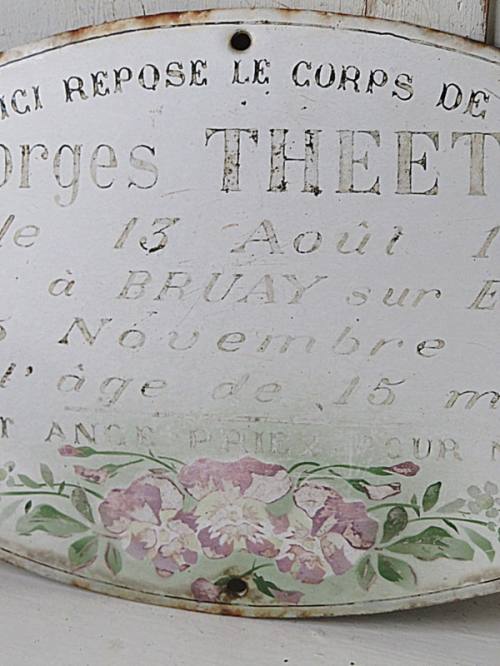 ICI REPOSE LE CORPS DE
orges THEET
le 13 Août 1
à BRUAY sur E
Novembre
l'âge de 15 m
T ANGE PRIEZ POUR N